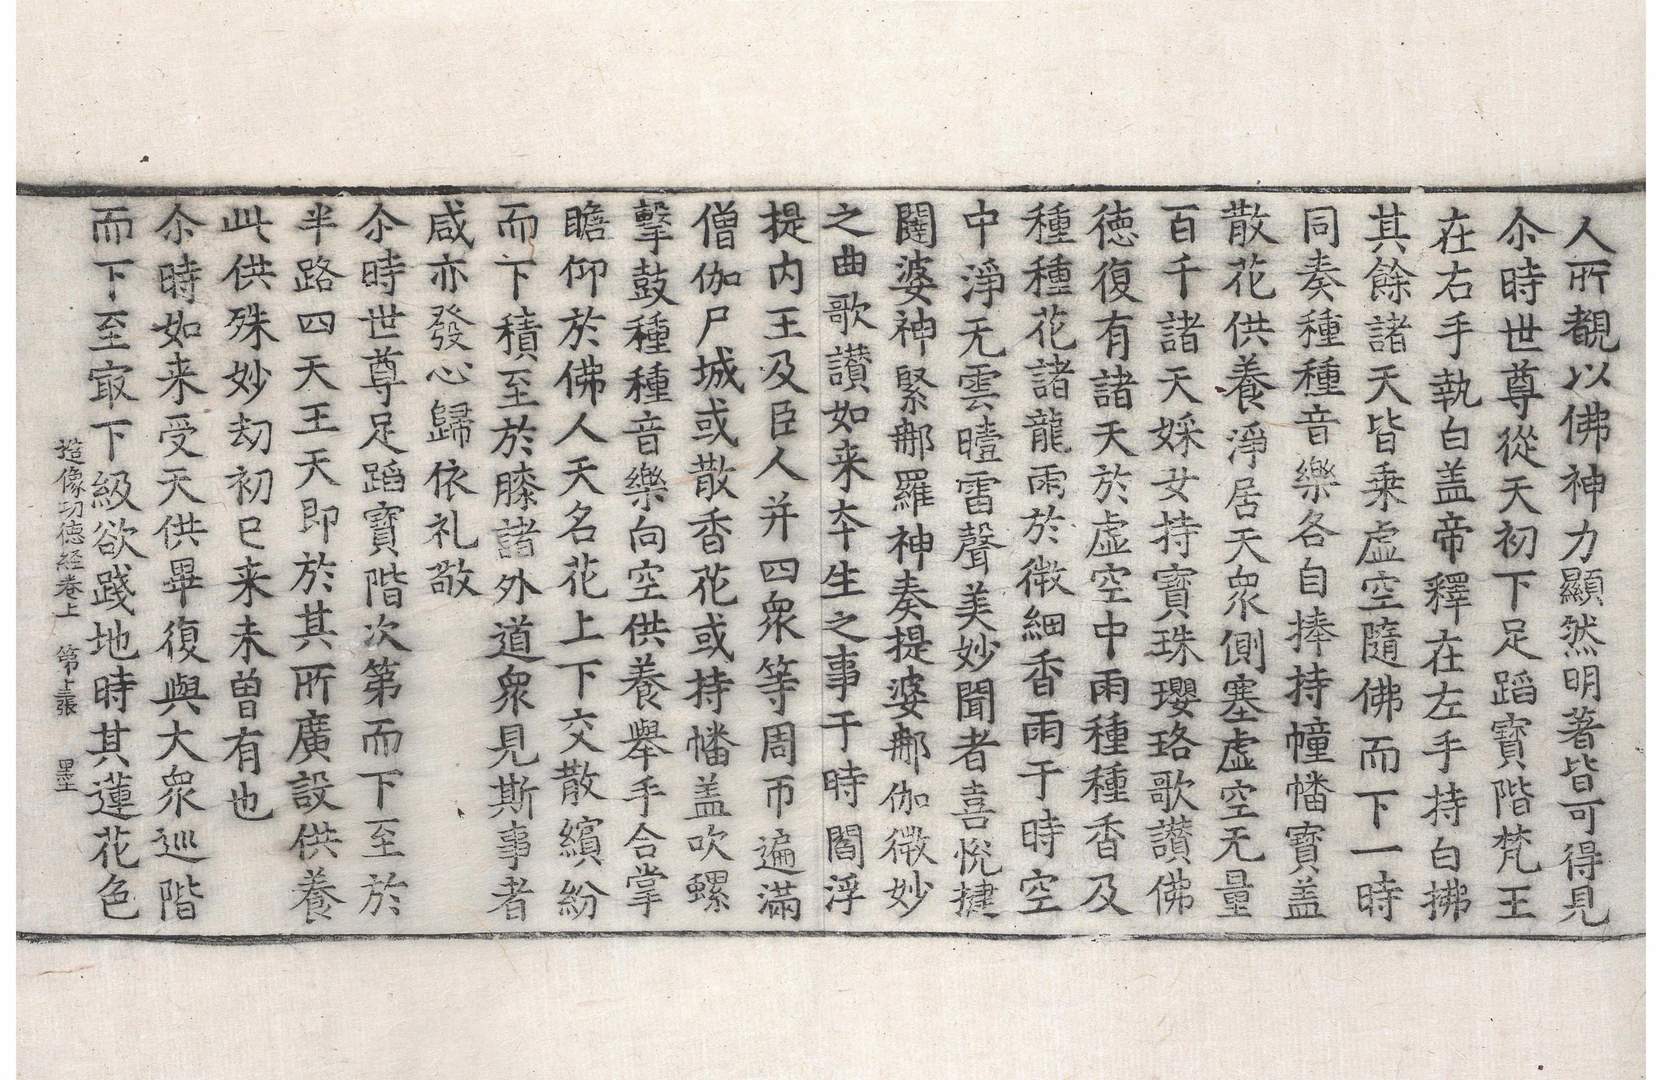 人所覩以佛神力顯然明著皆可得見
尒時世尊從天初下足蹈寶階梵王
在右手執白盖帝釋在左手持白拂
其餘諸天皆乗虛空隨佛而下一時
同奏種種音樂各自捧持幢幡寶盖
散花供養淨居天衆側塞虛空无量
百千諸天婇女持寶珠瓔珞歌讃佛
徳復有諸天於虛空中雨種種香及
種種花諸龍雨於微細香雨于時空
中淨无雲曀雷聲美妙聞者喜悅揵
闥婆神緊那羅神奏提婆那伽微妙
之曲歌讃如来本生之事于時閻浮
提内王及臣人并四衆等周帀遍滿
僧伽尸城或散香花或持幡盖吹螺
擊鼓種種音樂向空供養舉手合掌
瞻仰於佛人天名花上下交散繽紛
而下積至於膝諸外道衆見斯事者
咸亦發心歸依礼敬
尒時世尊足蹈寶階次第而下至於
半路四天王天即於其所廣設供養
此供殊妙劫初已来未曽有也
尒時如来受天供畢復與大衆巡階
而下至㝡下級欲踐地時其蓮花色
造像功徳経卷上 第十張 墨